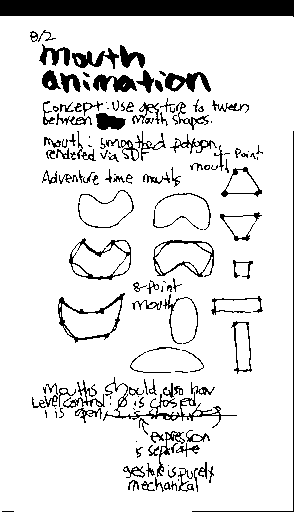 8/2
mouth
animation
Concept: Use gesture to tween
between mouth shapes.
mouth: smoothed polygon,
rendered via SDF
4-Point
mouth
Adventure time mouths
8-point
mouth
mouths should also have
Level control: 0 is closed,
1 is open, 2 is shouting
expression
is separate
gesture is purely
mechanical